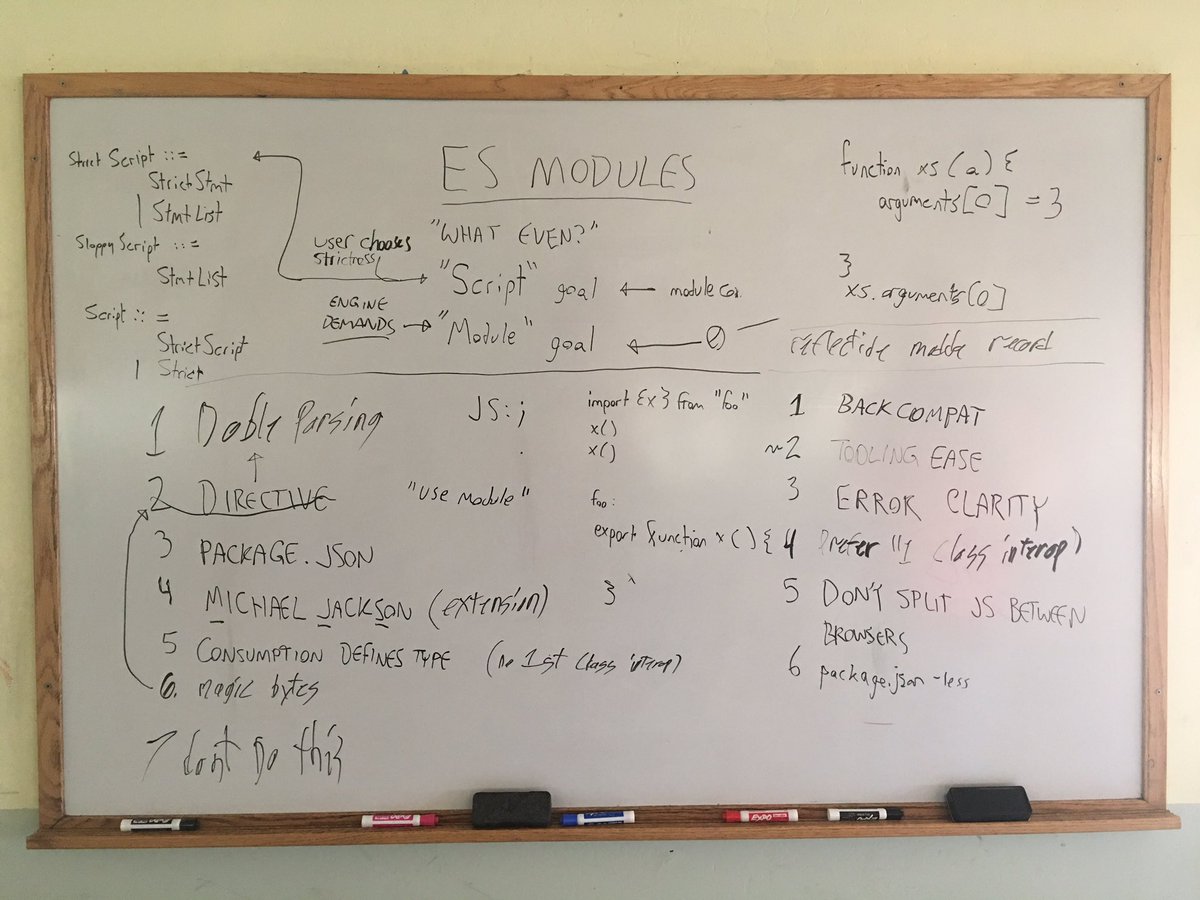 ES MODULES
"WHAT EVEN?"
"Script" goal ← module
"Module" goal ←
user chooses
strictness
ENGINE
DEMANDS →
Strict Script ::=
StrictStmt
| StmtList
Sloppy Script ::=
StmtList
Script ::=
StrictScript
| Strict
function xs(a) {
arguments[0] = 3
}
xs.arguments[0]
record
1 Doble Parsing
2 DIRECTIVE "use module"
3 PACKAGE.JSON
4 MICHAEL JACKSON (extension)
5 CONSUMPTION DEFINES TYPE (no 1st class interop)
6. magic bytes
7 dont Do this
JS: ;
import {x} from "foo"
x()
x()
foo:
export function x() {
}
1 BACKCOMPAT
~2 TOOLING EASE
3 ERROR CLARITY
4 Prefer "1 class interop)
5 DON'T SPLIT JS BETWEEN
BROWSERS
6 package.json-less
EXPO